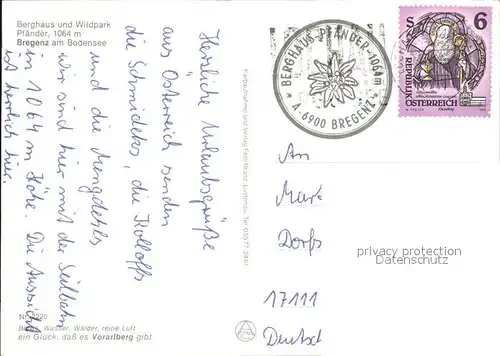 Berghaus und Wildpark
Pfänder, 1064 m
Bregenz am Bodensee
Herzliche Urlaubsgrüße
aus Österreich senden
die Schmidetks, die Rolloffs
und die Mengdetles
wir sind hier mit der Seilbahn
in 1064 m Höhe. Die Aussicht
ist herrlich hier.
Nr. 2220
Berge, Wasser, Wälder, reine Luft
ein Glück, daß es Vorarlberg gibt
Farbaufnahme und Verlag Foto Branz, Lustenau, Tel. 05577-2461
BERGHAUS PFÄNDER-1064m
A-6900 BREGENZ
S 6
REPUBLIK
ÖSTERREICH
An
Mar
Dorfs
17111
Deutsch
privacy protection
Datenschutz